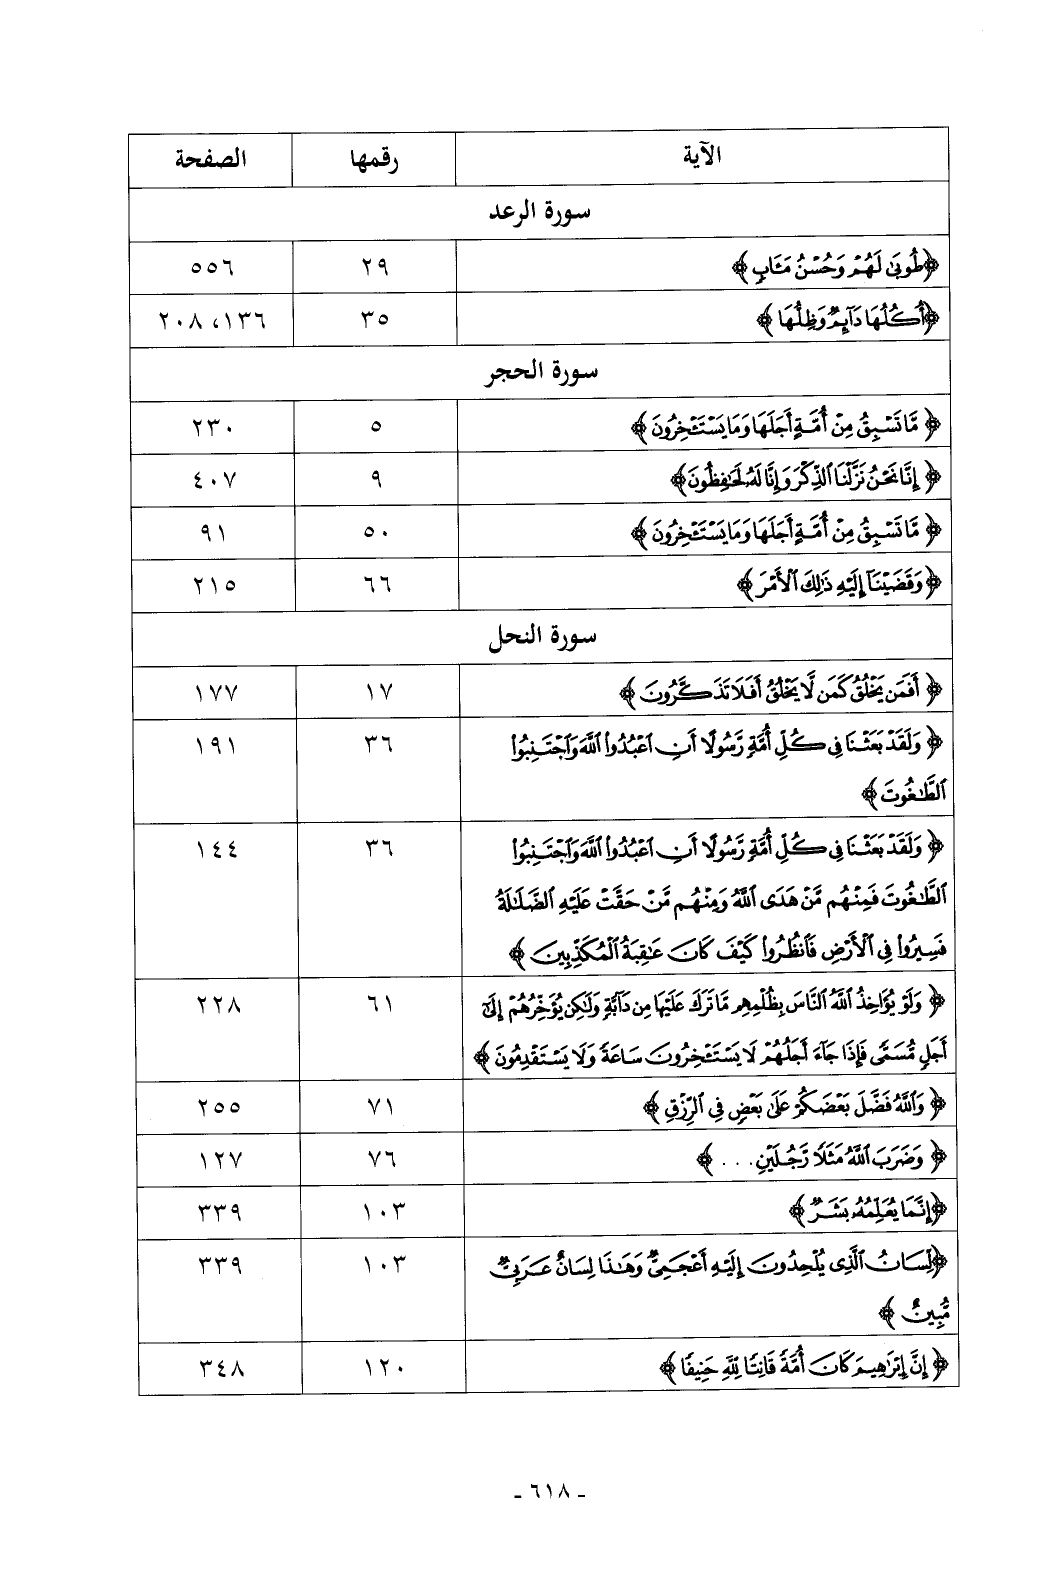 الآية رقمها الصفحة
سورة الرعد
﴿طُوبَىٰ لَهُمْ وَحُسْنُ مَـَٔابٍ﴾ ٢٩ ٥٥٦
﴿أُكُلُهَا دَآئِمٌ وَظِلُّهَا﴾ ٣٥ ١٣٦، ٢٠٨
سورة الحجر
﴿مَّا تَسْبِقُ مِنْ أُمَّةٍ أَجَلَهَا وَمَا يَسْتَـْٔخِرُونَ﴾ ٥ ٢٣٠
﴿إِنَّا نَحْنُ نَزَّلْنَا ٱلذِّكْرَ وَإِنَّا لَهُۥ لَحَـٰفِظُونَ﴾ ٩ ٤٠٧
﴿مَّا تَسْبِقُ مِنْ أُمَّةٍ أَجَلَهَا وَمَا يَسْتَـْٔخِرُونَ﴾ ٥٠ ٩١
﴿وَقَضَيْنَآ إِلَيْهِ ذَٰلِكَ ٱلْأَمْرَ﴾ ٦٦ ٢١٥
سورة النحل
﴿أَفَمَن يَخْلُقُ كَمَن لَّا يَخْلُقُ أَفَلَا تَذَكَّرُونَ﴾ ١٧ ١٧٧
﴿وَلَقَدْ بَعَثْنَا فِى كُلِّ أُمَّةٍ رَّسُولًا أَنِ ٱعْبُدُوا۟ ٱللَّهَ وَٱجْتَنِبُوا۟ ٣٦ ١٩١
ٱلطَّـٰغُوتَ﴾
﴿وَلَقَدْ بَعَثْنَا فِى كُلِّ أُمَّةٍ رَّسُولًا أَنِ ٱعْبُدُوا۟ ٱللَّهَ وَٱجْتَنِبُوا۟ ٣٦ ١٤٤
ٱلطَّـٰغُوتَ فَمِنْهُم مَّنْ هَدَى ٱللَّهُ وَمِنْهُم مَّنْ حَقَّتْ عَلَيْهِ ٱلضَّلَـٰلَةُ
فَسِيرُوا۟ فِى ٱلْأَرْضِ فَٱنظُرُوا۟ كَيْفَ كَانَ عَـٰقِبَةُ ٱلْمُكَذِّبِينَ﴾
﴿وَلَوْ يُؤَاخِذُ ٱللَّهُ ٱلنَّاسَ بِظُلْمِهِم مَّا تَرَكَ عَلَيْهَا مِن دَآبَّةٍ وَلَـٰكِن يُؤَخِّرُهُمْ إِلَىٰٓ ٦١ ٢٢٨
أَجَلٍ مُّسَمًّى فَإِذَا جَآءَ أَجَلُهُمْ لَا يَسْتَـْٔخِرُونَ سَاعَةً وَلَا يَسْتَقْدِمُونَ﴾
﴿وَٱللَّهُ فَضَّلَ بَعْضَكُمْ عَلَىٰ بَعْضٍ فِى ٱلرِّزْقِ﴾ ٧١ ٢٥٥
﴿وَضَرَبَ ٱللَّهُ مَثَلًا رَّجُلَيْنِ . . .﴾ ٧٦ ١٢٧
﴿إِنَّمَا يُعَلِّمُهُۥ بَشَرٌ﴾ ١٠٣ ٣٣٩
﴿لِّسَانُ ٱلَّذِى يُلْحِدُونَ إِلَيْهِ أَعْجَمِىٌّ وَهَـٰذَا لِسَانٌ عَرَبِىٌّ ١٠٣ ٣٣٩
مُّبِينٌ﴾
﴿إِنَّ إِبْرَٰهِيمَ كَانَ أُمَّةً قَانِتًا لِّلَّهِ حَنِيفًا﴾ ١٢٠ ٣٤٨
ـ ٦١٨ ـ